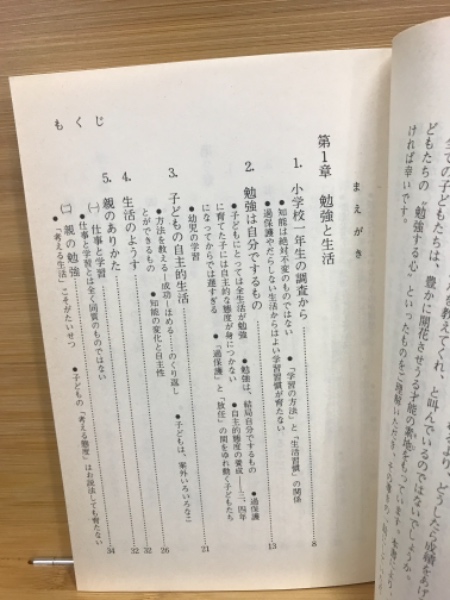 全ての子どもたちは、豊かに開花させうる才能の素地をもっています。本書により、
どもたちの〝勉強する心〟といったものをご理解いただき、その
ければ幸いです。
を教えてくれ、と叫んでいるのではないでしょうか。
どうしたら成績をあげ
まえがき
第1章 勉強と生活
1. 小学校一年生の調査から……8
●知能は絶対不変のものではない ●「学習の方法」と「生活習慣」の関係
●過保護やだらしない生活からはよい学習習慣が育たない
2. 勉強は自分でするもの……13
●子どもにとっては全生活が勉強 ●勉強は、結局自分でするもの ●過保護
に育てた子には自主的な態度が身につかない ●自主的態度の養成 三、四年
になってからでは遅すぎる ●「過保護」と「放任」の間をゆれ動く子どもたち
●幼児の学習……21
3. 子どもの自主的生活……26
●方法を教える―成功―ほめる―のくり返し ●子どもは、案外いろいろなこ
とができるもの ●知能の変化と自主性
4. 生活のようす……32
5. 親のありかた……32
㈠ 仕事と学習
●仕事と学習とは全く同質のものではない
㈡ 親の勉強……34
●「考える生活」こそがたいせつ ●子どもの「考える態度」はお説法しても育たない
もくじ